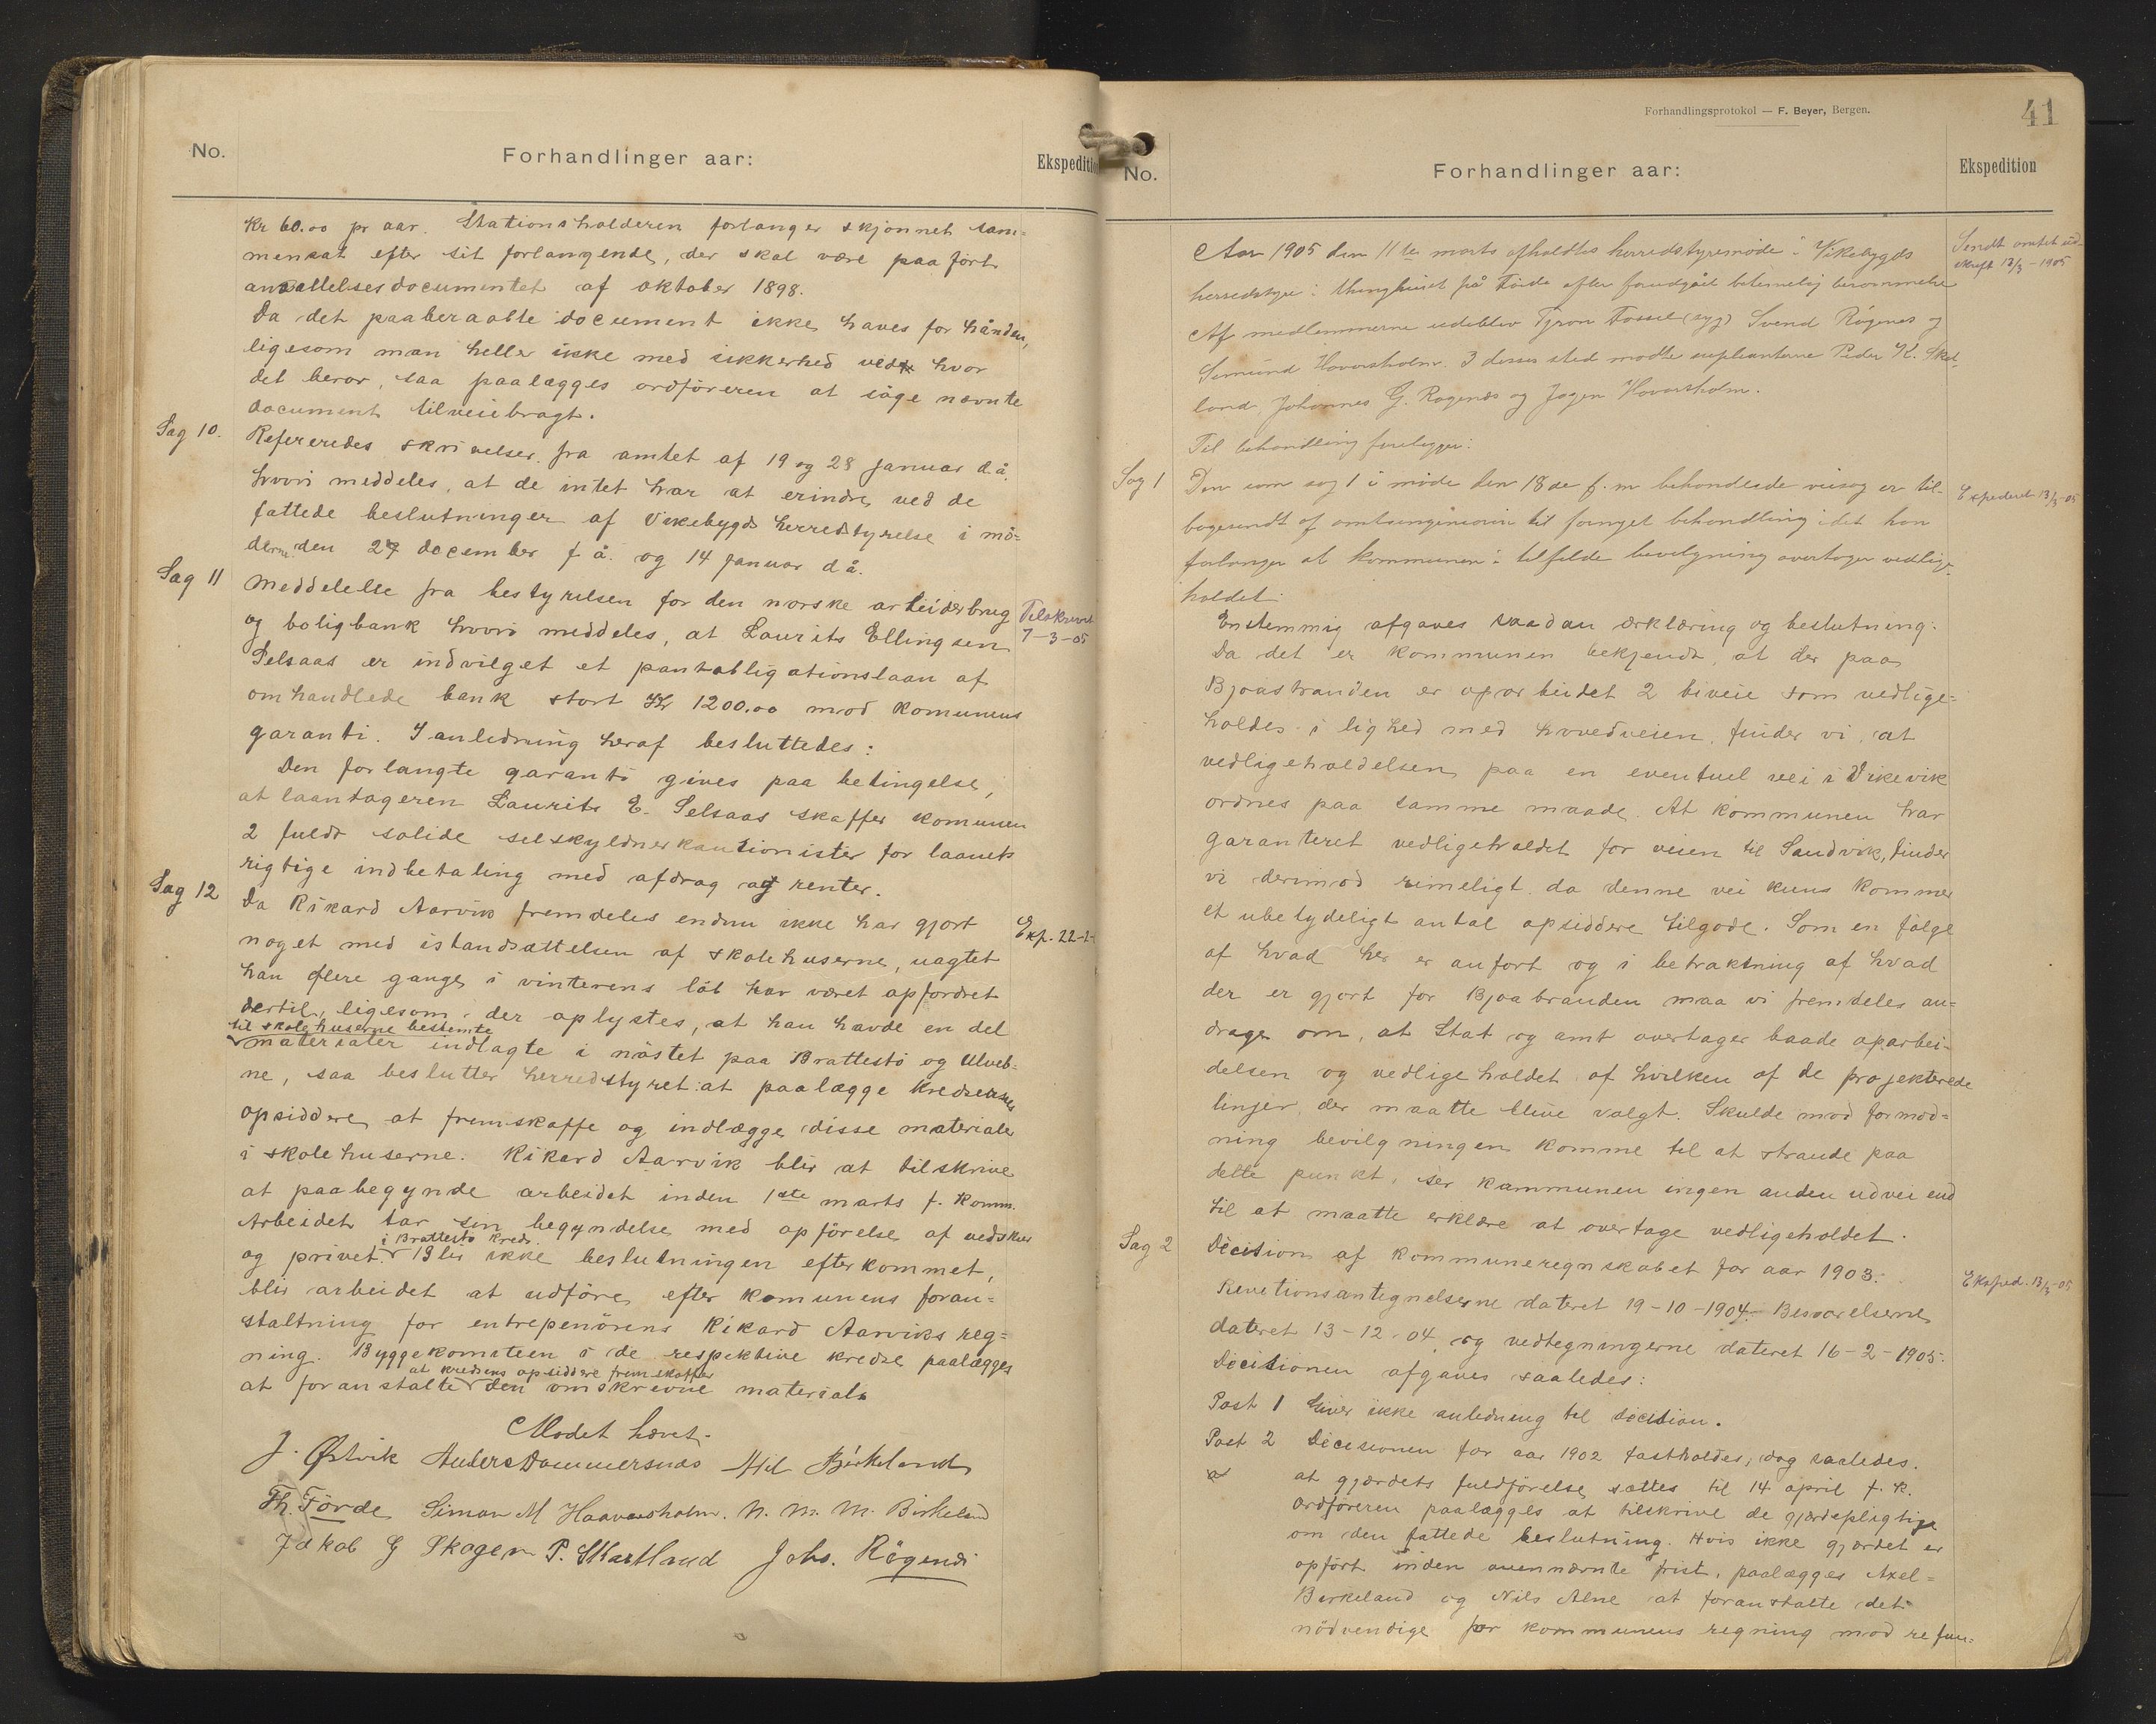 No.
Forhandlinger aar:
Ekspedition
Kr 60.00 pr aar. Stationsholderen forlanger skjønnet sam=
mensat efter sit forlangende, der skal være paaført
ansættelsesdocumentet af oktober 1898.
Da det paaberaabte document ikke haves for hånden,
ligesom man heller ikke med sikkerhed ved hvor
det beror, saa paalægges ordføreren at søge nævnte
document tilveiebragt.
Sag 10.
Refereredes skrivelser fra amtet af 19 og 28 januar d.å.
hvori meddeles, at de intet har at erindre ved de
fattede beslutninger af Vikebygds herredstyrelse i mö=
derne den 29 december f å. og 14 januar då.
Sag 11
Meddelelse fra bestyrelsen for den norske arbeiderbrug
og boligbank hvori meddeles, at Laurits Ellingsen
Selsaas er indvilget et pantobligationslaan af
omhandlede bank stort Kr 1200.00 mod komunens
garanti. I anledning heraf besluttedes:
Tilskrevet
7-3-05
Den forlangte garanti gives paa betingelse,
at laantageren Laurits E. Selsaas skaffer komunen
2 fuldt solide selskyldnerkautionister for laanets
rigtige indbetaling med afdrag og renter.
Sag 12
Da Rikard Aarvik fremdeles endnu ikke har gjort
noget med istandsættelsen af skolehuserne, uagtet
han flere gange i vinterens löb har været opfordret
dertil, ligesom der oplystes, at han havde en del
til skolehuserne bestemte
materialer indlagte i nöstet paa Brattestö og Ulveb=
ne, saa beslutter herredstyret: at paalægge kredsenes
opsiddere at fremskaffe og indlægge disse materialer
i skolehuserne. Rikard Aarvik blir at tilskrive
at paabegynde arbeidet inden 1ste marts f. komm.
Arbeidet tar sin begyndelse med opförelse af vedskur
i Brattestö kreds.
og privet. Blir ikke beslutningen efterkommet,
blir arbeidet at udföre efter komunens foran=
staltning for entrepenörens Rikard Aarviks reg=
ning. Byggekomiteen i de respektive kredse paalægges
at kredsens opsiddere fremskaffer
at foranstalte den omskrevne materiale
Exp. 22-2
Mødet hævet.
J. Østvik Anders Dommersnes Axel Birkeland
Th. Förde Simon M Haavarsholm. N. M. M. Birkeland
Jakob G Skogen P. Skartland Johs. Rögenes
Forhandlingsprotokol — F. Beyer, Bergen.
41
No.
Forhandlinger aar:
Ekspedition
Aar 1905 den 11te marts afholdtes herredstyremøde i Vikebygds
herredstyre i thinghuset på Förde efter forudgåt betimelig berammelse
Af medlemmerne udeblev Tjron Fosse (syg) Svend Rögenes og
Simund Hovarsholm. I disses sted mødte supleanterne Peder K. Skot-
land, Johannes G. Rogenes og Jogen Hovarsholm.
Sendt amtet ud-
skrift 13/3-1905
Til behandling foreligger:
Sag 1
Den som sag 1 i møde den 18de f. m behandlede veisag er til-
bagesendt af amtsingeniøren til fornyet behandling idet han
forlanger at kommunen i tilfælde bevilgning overtager vedlige-
holdet.
Expederet 13/3-05
Enstemmig afgaves saadan erklæring og beslutning:
Da det er kommunen bekjendt, at der paa
Bjoastranden er oparbeidet 2 biveie som vedlige=
holdes i lighed med hovedveien, finder vi, at
vedligeholdelsen paa en eventuel vei i Vikevik
ordnes paa samme maade. At kommunen har
garanteret vedligeholdet for veien til Sandvik, finder
vi derimod rimeligt, da denne vei kuns kommer
et ubetydeligt antal opsiddere tilgode. Som en følge
af hvad her er anført og i betraktning af hvad
der er gjort for Bjoabranden maa vi fremdeles an=
drage om, at Stat og amt overtager baade oparbei-
delsen og vedligeholdet af hvilken af de projekterede
linjer, der maatte blive valgt. Skulde mod formod=
ning bevilgningen komme til at strande paa
dette punkt, ser kommunen ingen anden udvei end
til at maatte erklære at overtage vedligeholdet.
Sag 2
Decision af kommuneregnskabet for aar 1903.
Revetionsantegnelserne dateret 19-10-1904. Besvarelserne
dateret 13-12-04, og vedtegningerne dateret 16-2-1905.
Decisionen afgaves saaledes:
Eksped. 13/3-05
Post 1 Giver ikke anledning til decision.
Post 2 Decisionen for aar 1902 fastholdes, dog saaledes.
at gjærdets fuldførelse sættes til 14 april f. k.
ordføreren paalægges at tilskrive de gjærdepligtige
om den fattede beslutning. Hvis ikke gjærdet er
opført inden ovennævnte frist, paalægges Axel=
Birkeland og Nils Alne at foranstalte det
nödvendige for kommunens regning mod refun=